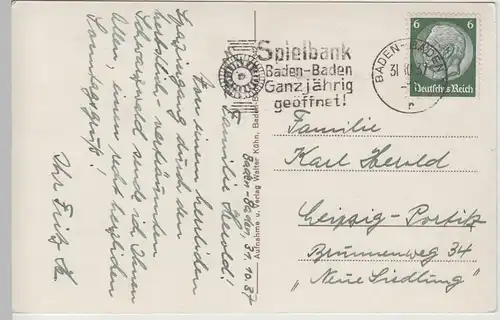 Baden-Baden, 31.10.37
Familie Herold!
Von einem herrlichen
Spaziergang durch den
herbstlich-verträumten
Schwarzwald sende ich Ihnen
allen, einen recht herzlichen
Sonntagsgruß!
Ihr Fritz K.
Aufnahme u. Verlag Walter Köhn, Baden-B
Spielbank
Baden-Baden
Ganzjährig
geöffnet!
BADEN-BADEN
31.10.37
6 6
Deutsches Reich
Familie
Karl Herold
Leipzig-Portitz
Brunnenweg 34
"Neue Siedlung"